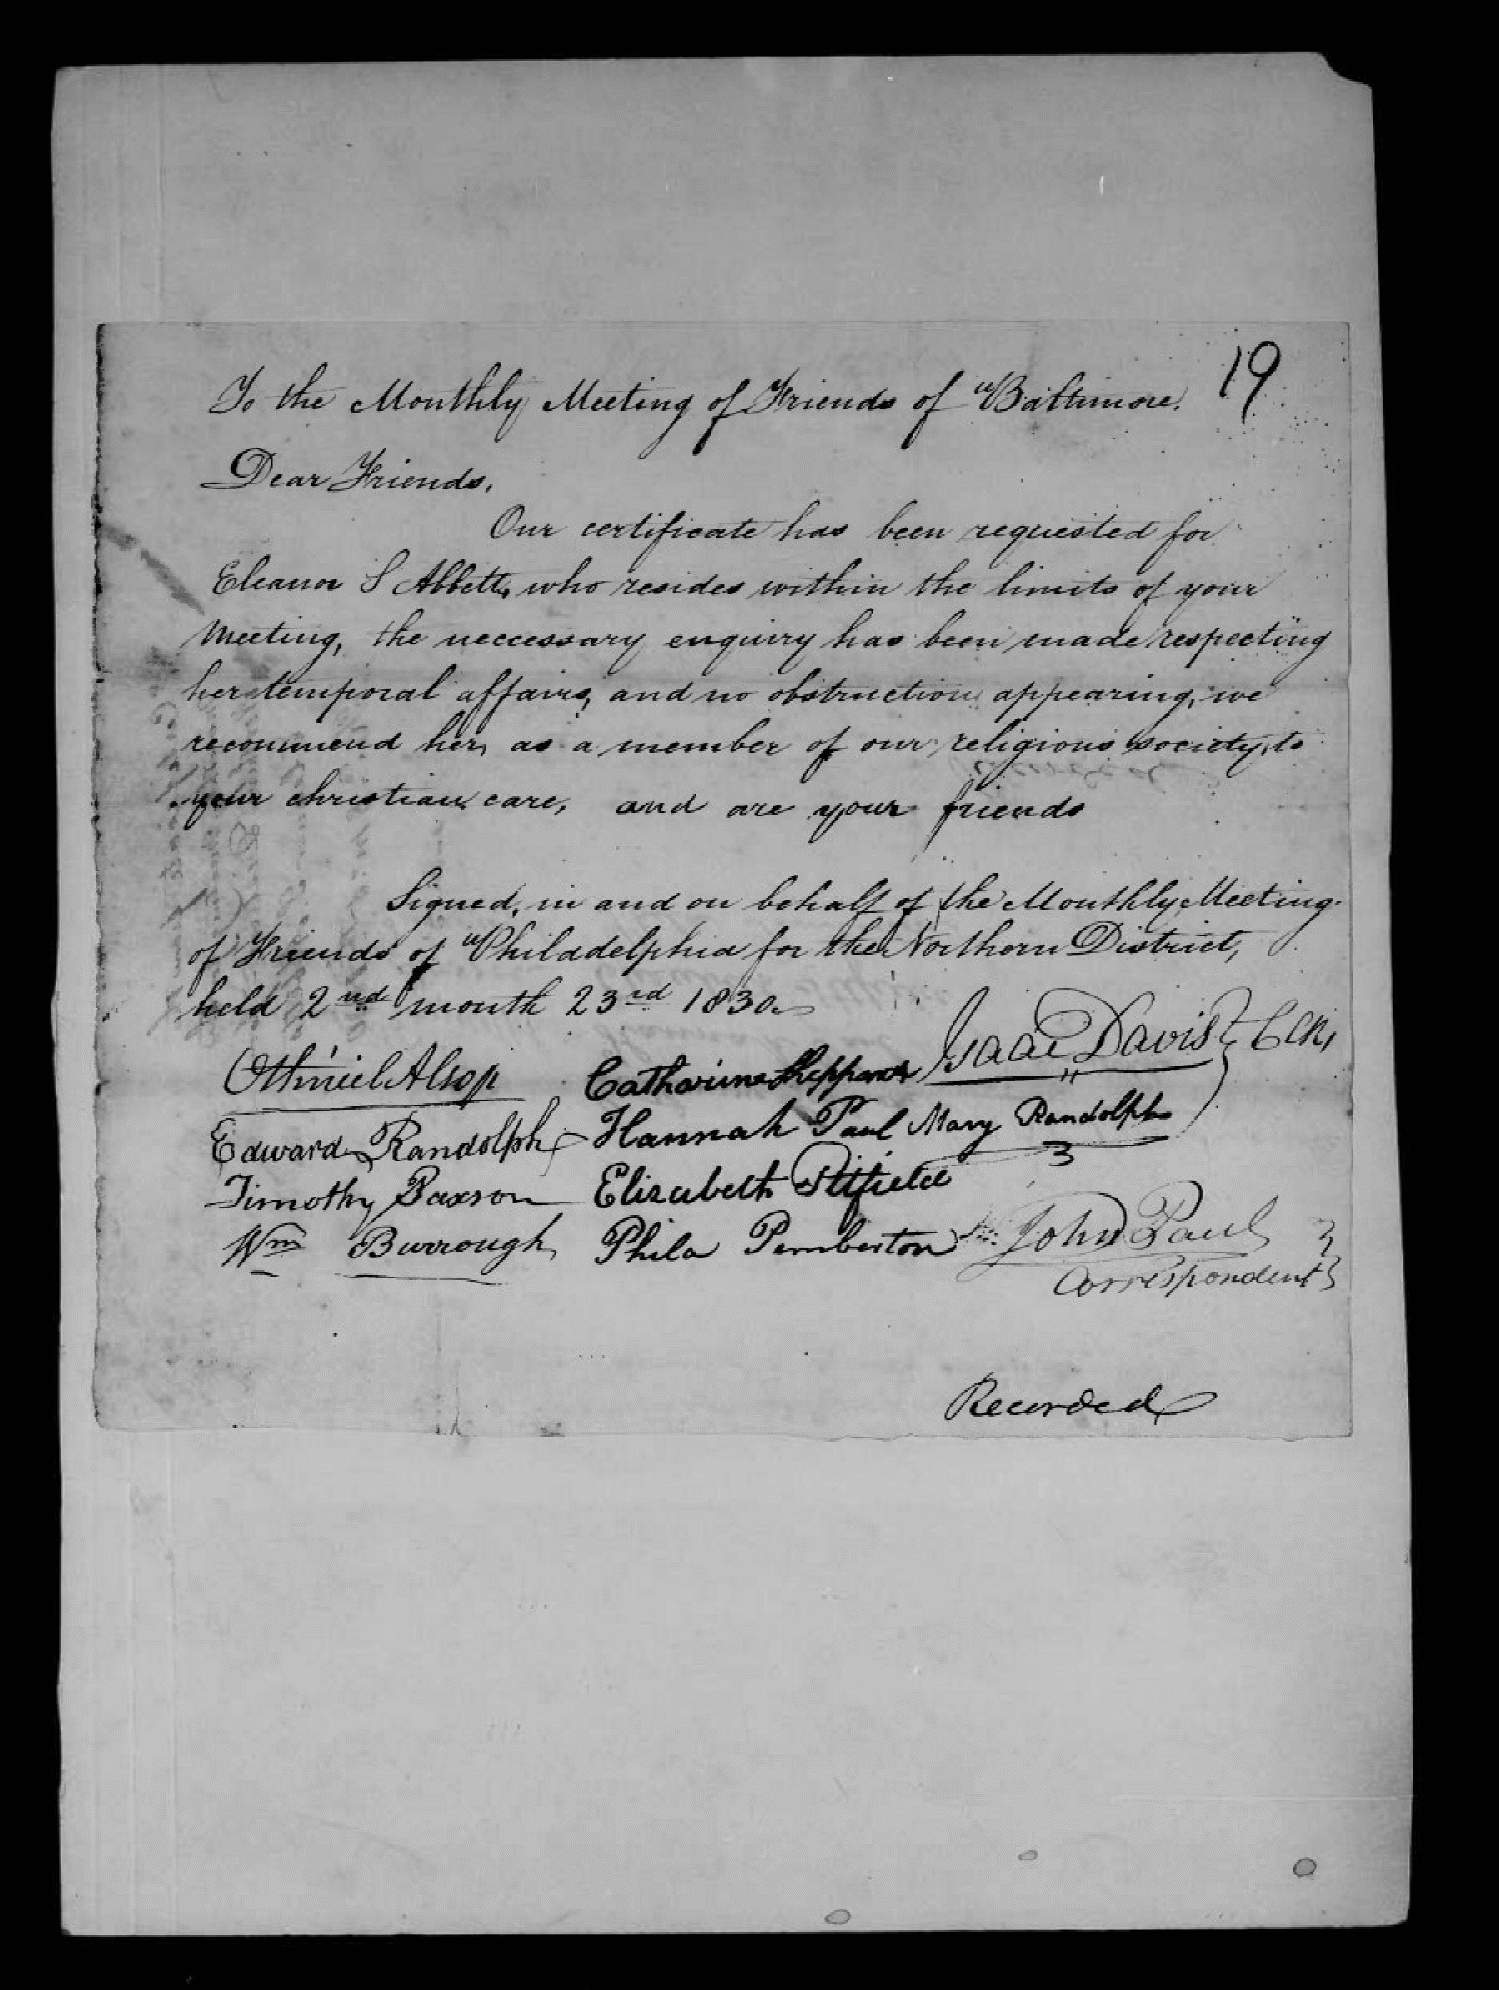 19
To the Monthly Meeting of Friends of Baltimore.
Dear Friends,
Our certificate has been requested for
Eleanor S Abbett, who resides within the limits of your
Meeting, the neccessary enquiry has been made respecting
her temporal affairs, and no obstruction appearing, we
recommend her, as a member of our religious society, to
your christian care, and are your friends
Signed, in and on behalf of the Monthly Meeting
of Friends of Philadelphia for the Northern District,
held 2nd month 23rd 1830.
Isaac Davis Clk,
Othniel Alsop Catharine Sheppard
Edward Randolph Hannah Paul Mary Randolph
Timothy Paxson Elizabeth Pitfield
Wm Burrough Phila Pemberton John Paul
Correspondent
Recorded